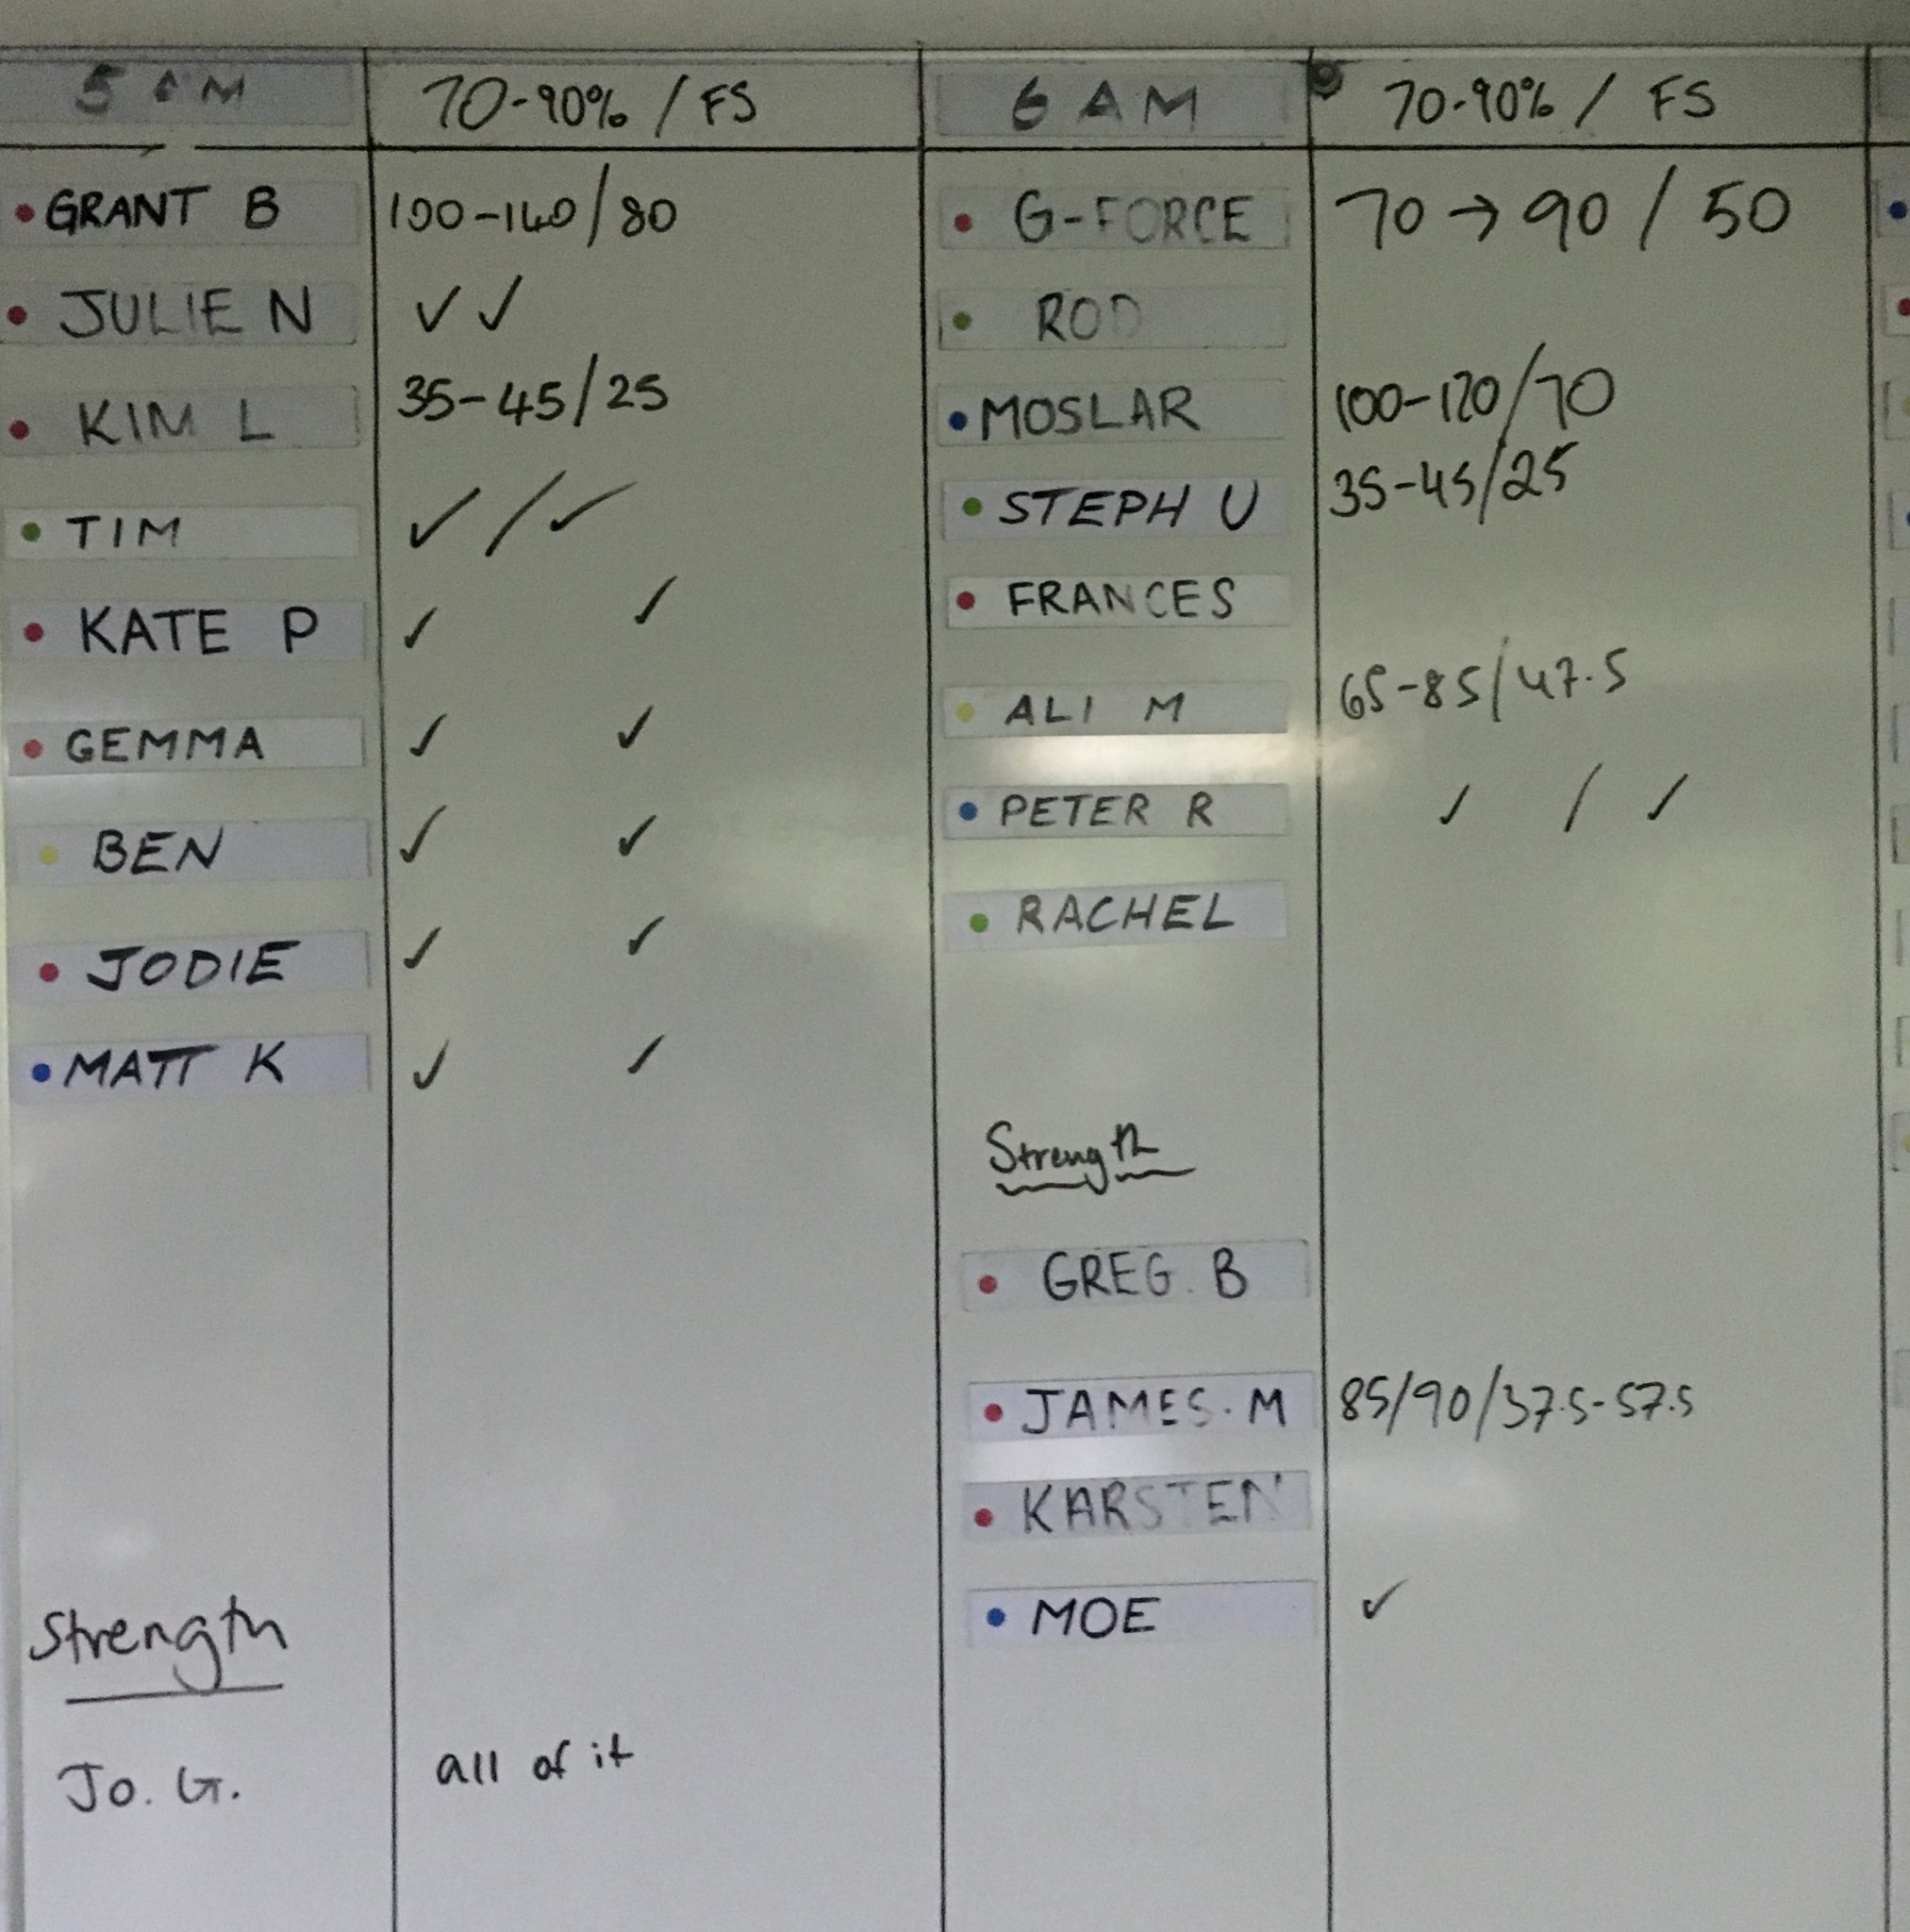 5 AM 70-90% / FS
GRANT B 100-140/80
JULIE N ✓ ✓
KIM L 35-45/25
TIM ✓ / ✓
KATE P ✓ ✓
GEMMA ✓ ✓
BEN ✓ ✓
JODIE ✓ ✓
MATT K ✓ ✓
Strength
Jo. G. all of it
6 AM 70-90% / FS
G-FORCE 70 → 90 / 50
ROD
MOSLAR 100-120/70
STEPH U 35-45/25
FRANCES
ALI M 65-85/47.5
PETER R ✓ / ✓
RACHEL
Strength
GREG. B
JAMES. M 85/90/37.5-57.5
KARSTEN
MOE ✓